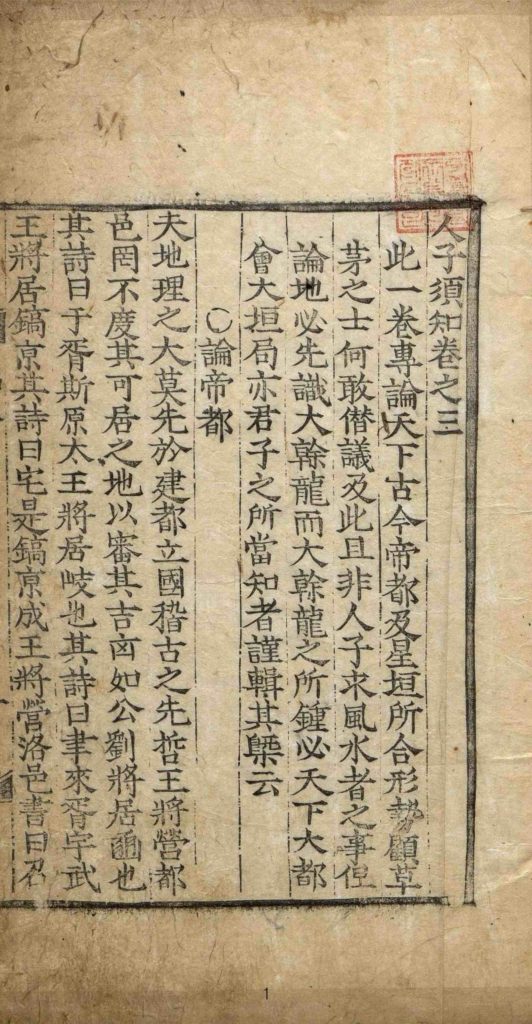 人子須知卷之三
此一卷專論天下古今帝都及星垣所合形勢顧草
茅之士何敢僭議及此且非人子求風水者之事但
論地必先識大榦龍而大榦龍之所鍾必天下大都
會大垣局亦君子之所當知者謹輯其槩云
○論帝都
夫地理之大莫先於建都立國稽古之先哲王將營都
邑罔不度其可居之地以審其吉凶如公劉將居豳也
其詩曰于胥斯原太王將居岐也其詩曰聿來胥宇武
王將居鎬京其詩曰宅是鎬京成王將營洛邑書曰召
1